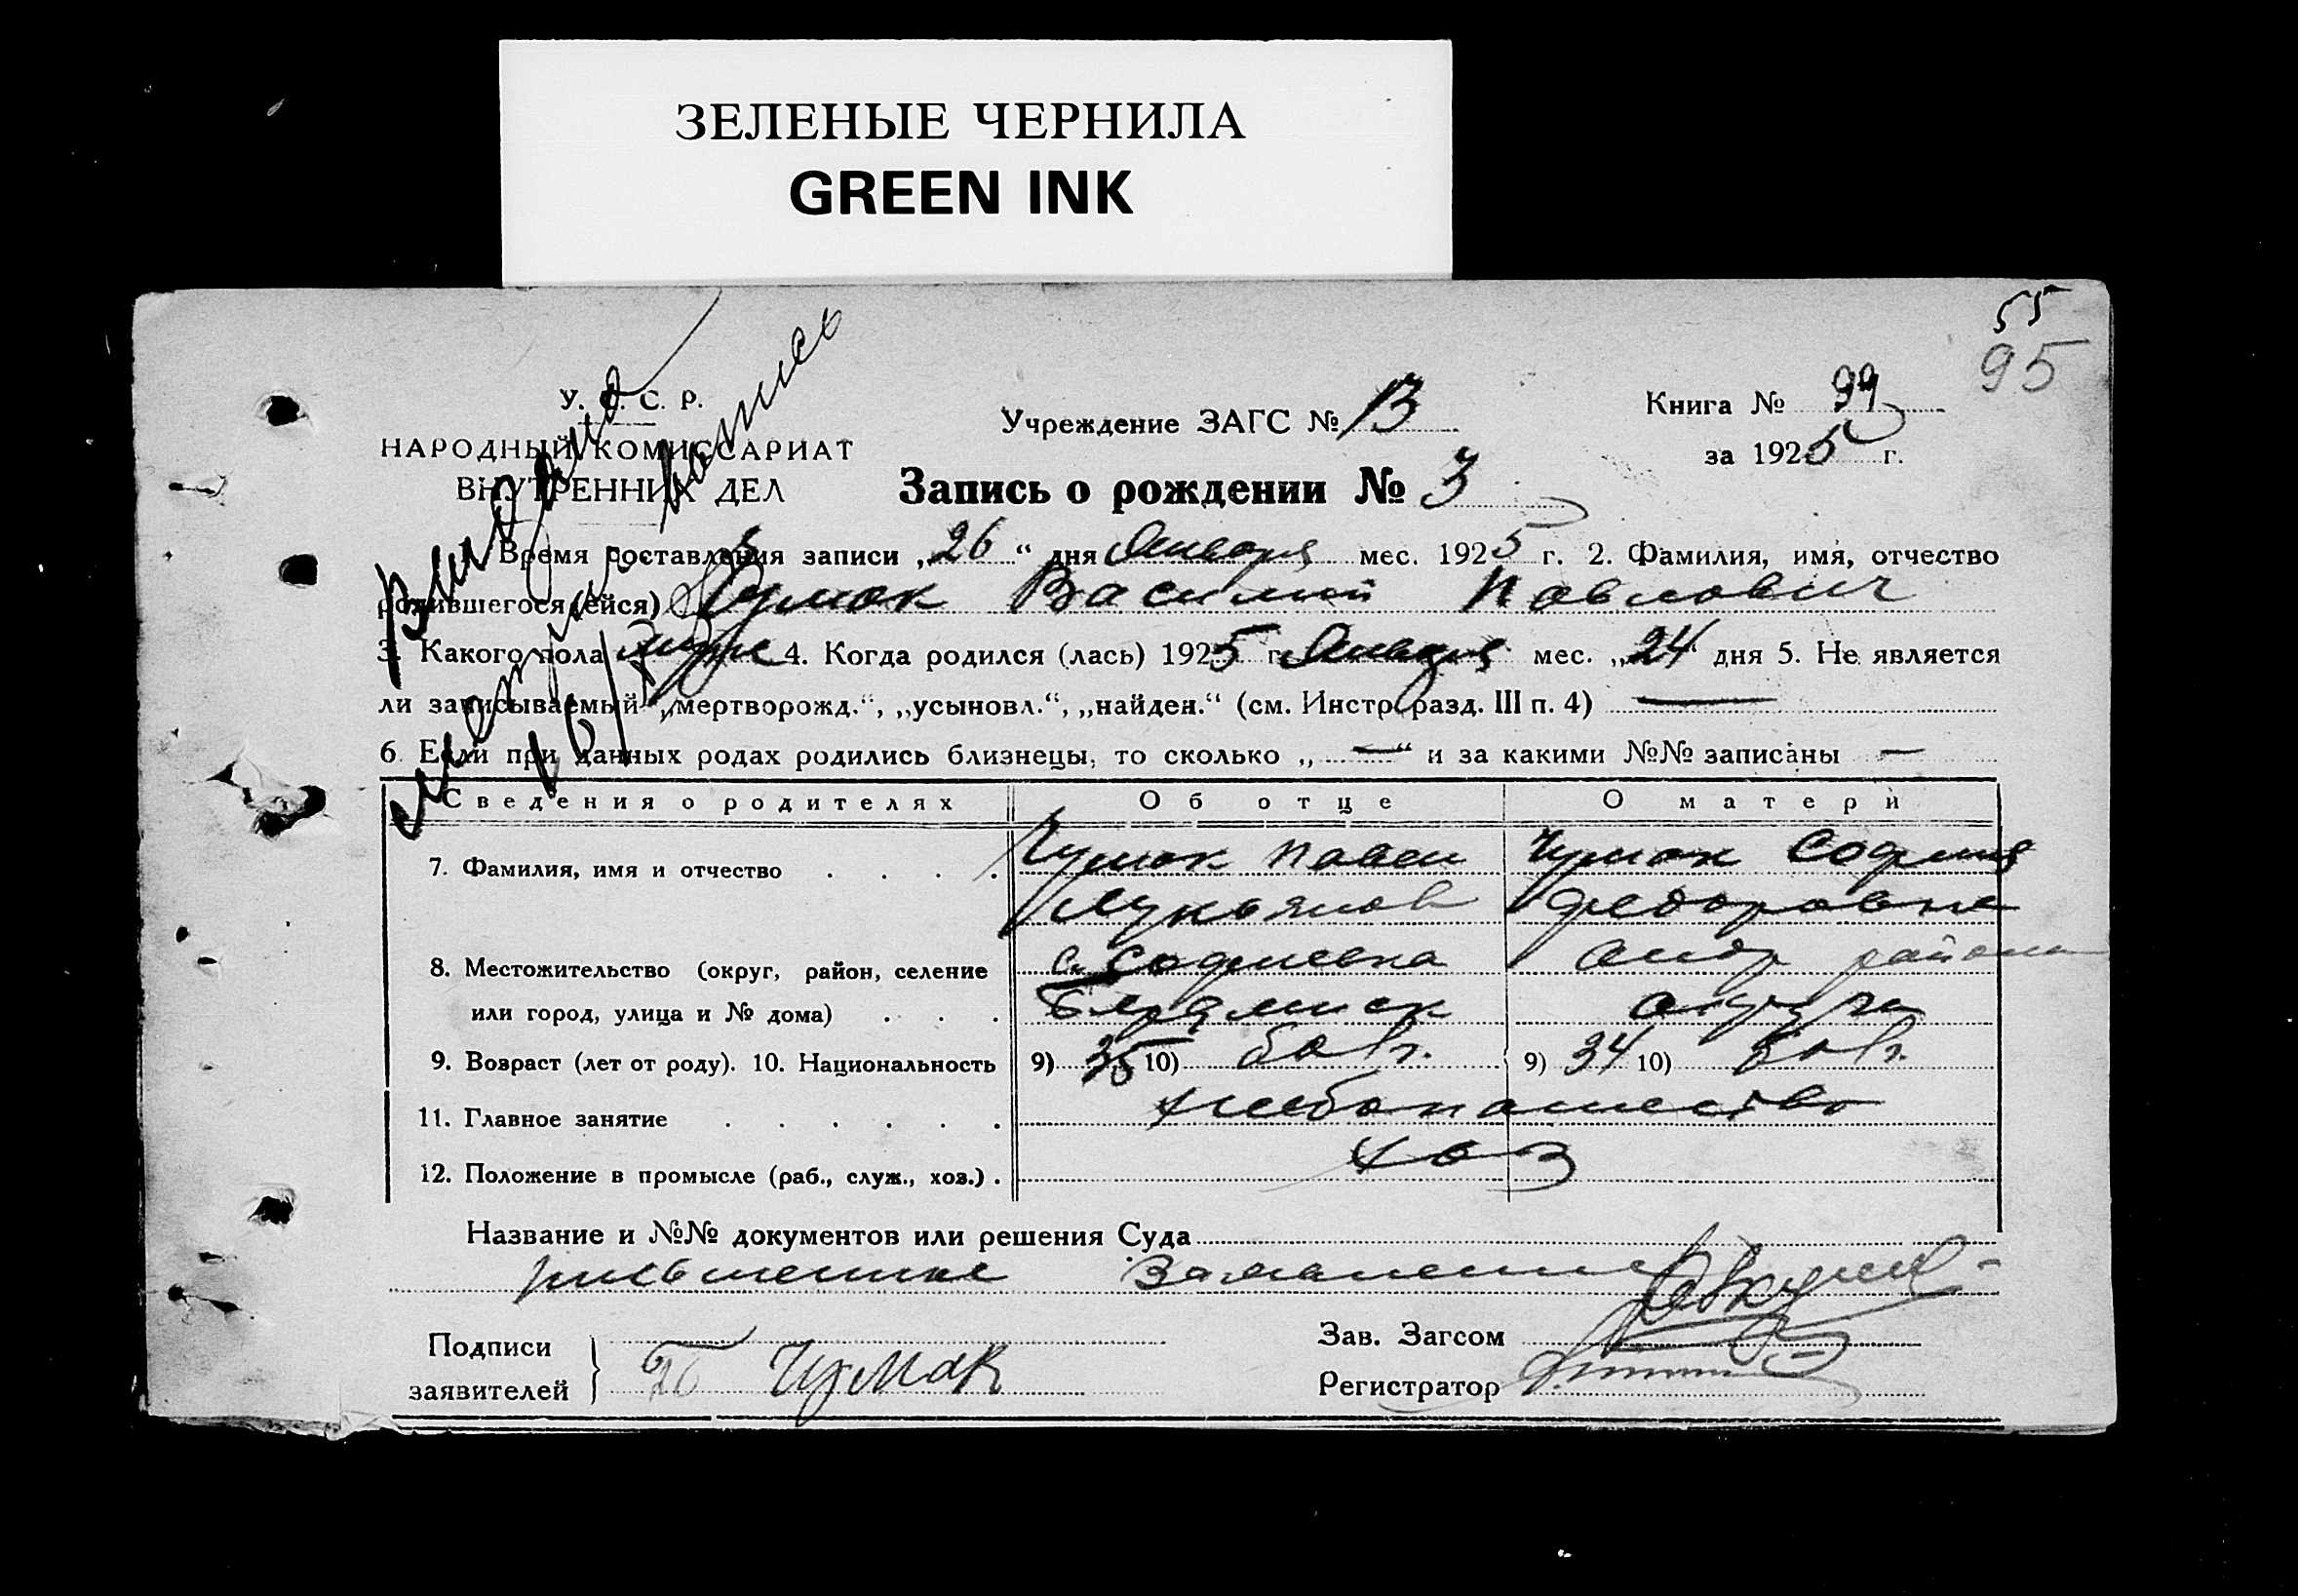 ЗЕЛЕНЫЕ ЧЕРНИЛА
GREEN INK
55
95
У. С. С. Р.
НАРОДНЫЙ КОМИССАРИАТ
ВНУТРЕННИХ ДЕЛ
Учреждение ЗАГС № 13
Книга № 99
за 1925 г.
Запись о рождении № 3
Время составления записи „26“ дня Января мес. 1925 г. 2. Фамилия, имя, отчество
родившегося (ейся) Чумак Василий Павлович
3. Какого пола муж 4. Когда родился (лась) 1925 г. Января мес. „24“ дня 5. Не является
ли записываемый „мертворожд.“, „усыновл.“, „найден.“ (см. Инстр. разд. III п. 4) —
6. Если при данных родах родились близнецы, то сколько „—“ и за какими №№ записаны —
Сведения о родителях Об отце О матери
7. Фамилия, имя и отчество . . . . Чумак Павел Чумак София
Лукьянов Федоровна
8. Местожительство (округ, район, селение с. Софиевка района
или город, улица и № дома) . . . Бердянск округи
9. Возраст (лет от роду). 10. Национальность 9) 35 10) болг. 9) 34 10) болг.
11. Главное занятие . . . . . . хлебопашество
12. Положение в промысле (раб., служ., хоз.) . хоз
Название и №№ документов или решения Суда
письменное
Подписи
заявителей } Чумак
Зав. Загсом
Регистратор